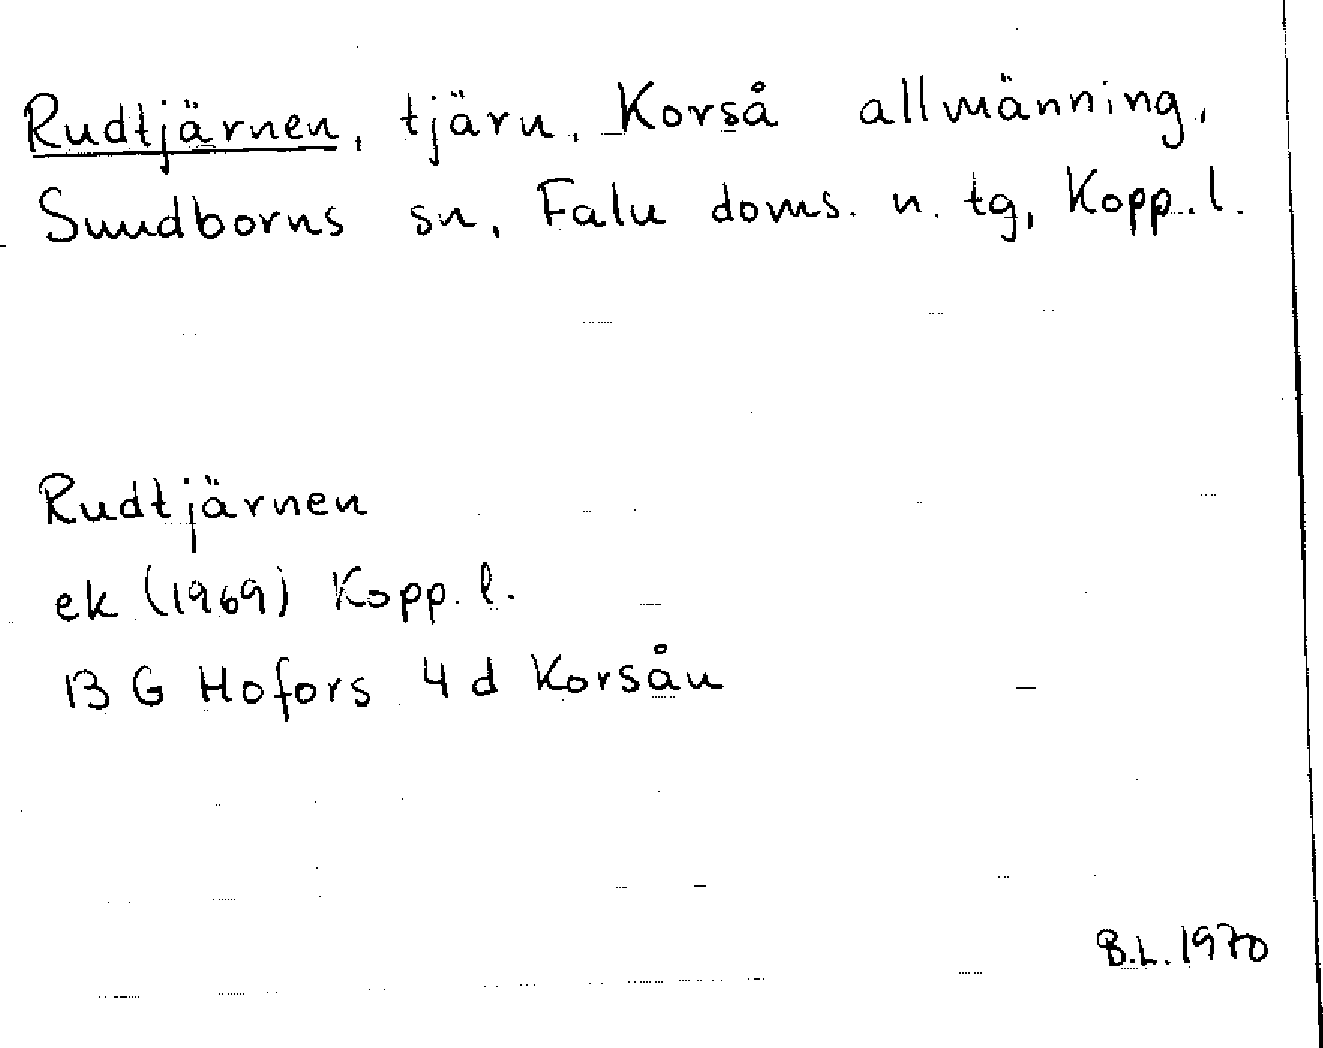 Rudtjärnen, tjärn, Korså allmänning,
Sundborns sn, Falu doms. n. tg, Kopp. l.
Rudtjärnen
ek (1969) Kopp. l.
13 G Hofors 4 d Korsån
B.L. 1970